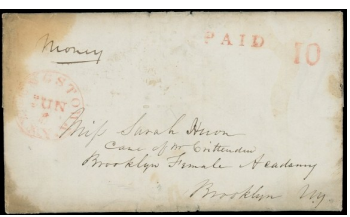 Money
PAID 10
JUN
Miss Sarah
Care of Wm Crittenden
Brooklyn Female Academy
Brooklyn N.Y.